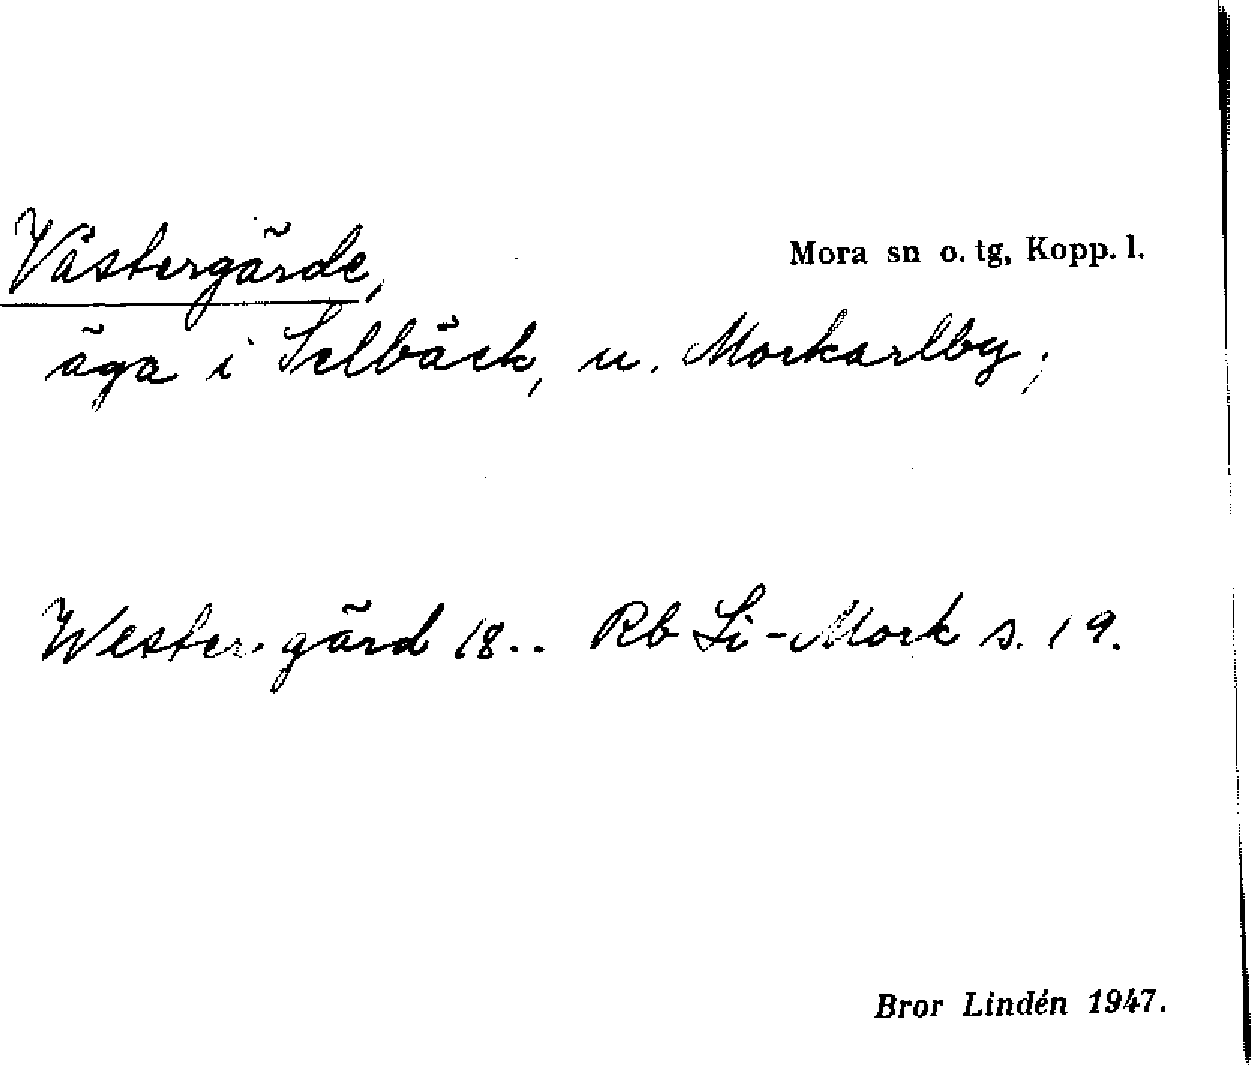 Västergärde,
Mora sn o. tg, Kopp. l.
äga i Selbäck, u. Morkarlby;
Westergärd 18.. Rb Li-Mork s. 19.
Bror Lindén 1947.